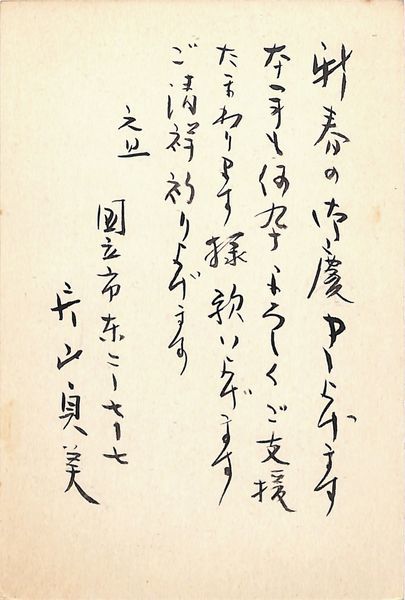 新春の御慶申し上げます
本年も何卒よろしくご支援
たまわります様願い上げます
ご清祥祈り上げます
元旦
国立市東二ー七ー七
長山貞美